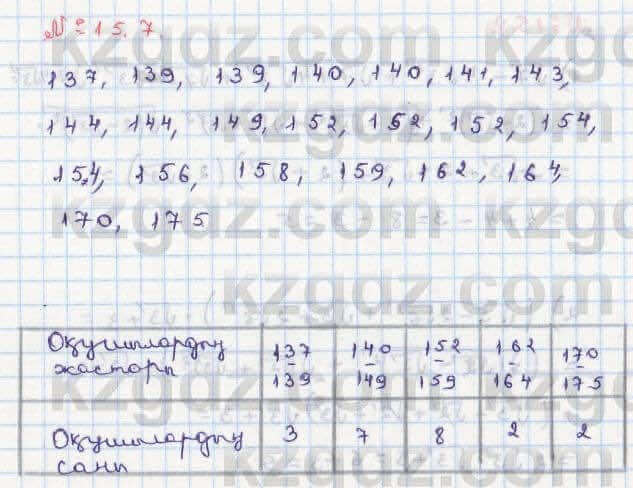 № 15.7.
137, 139, 139, 140, 140, 141, 143,
144, 144, 149, 152, 152, 152, 154,
154, 156, 158, 159, 162, 164,
170, 175
Оқушылардың жастары 137-139 140-149 152-159 162-164 170-175
Оқушылардың саны 3 7 8 2 2
kzgdz.com